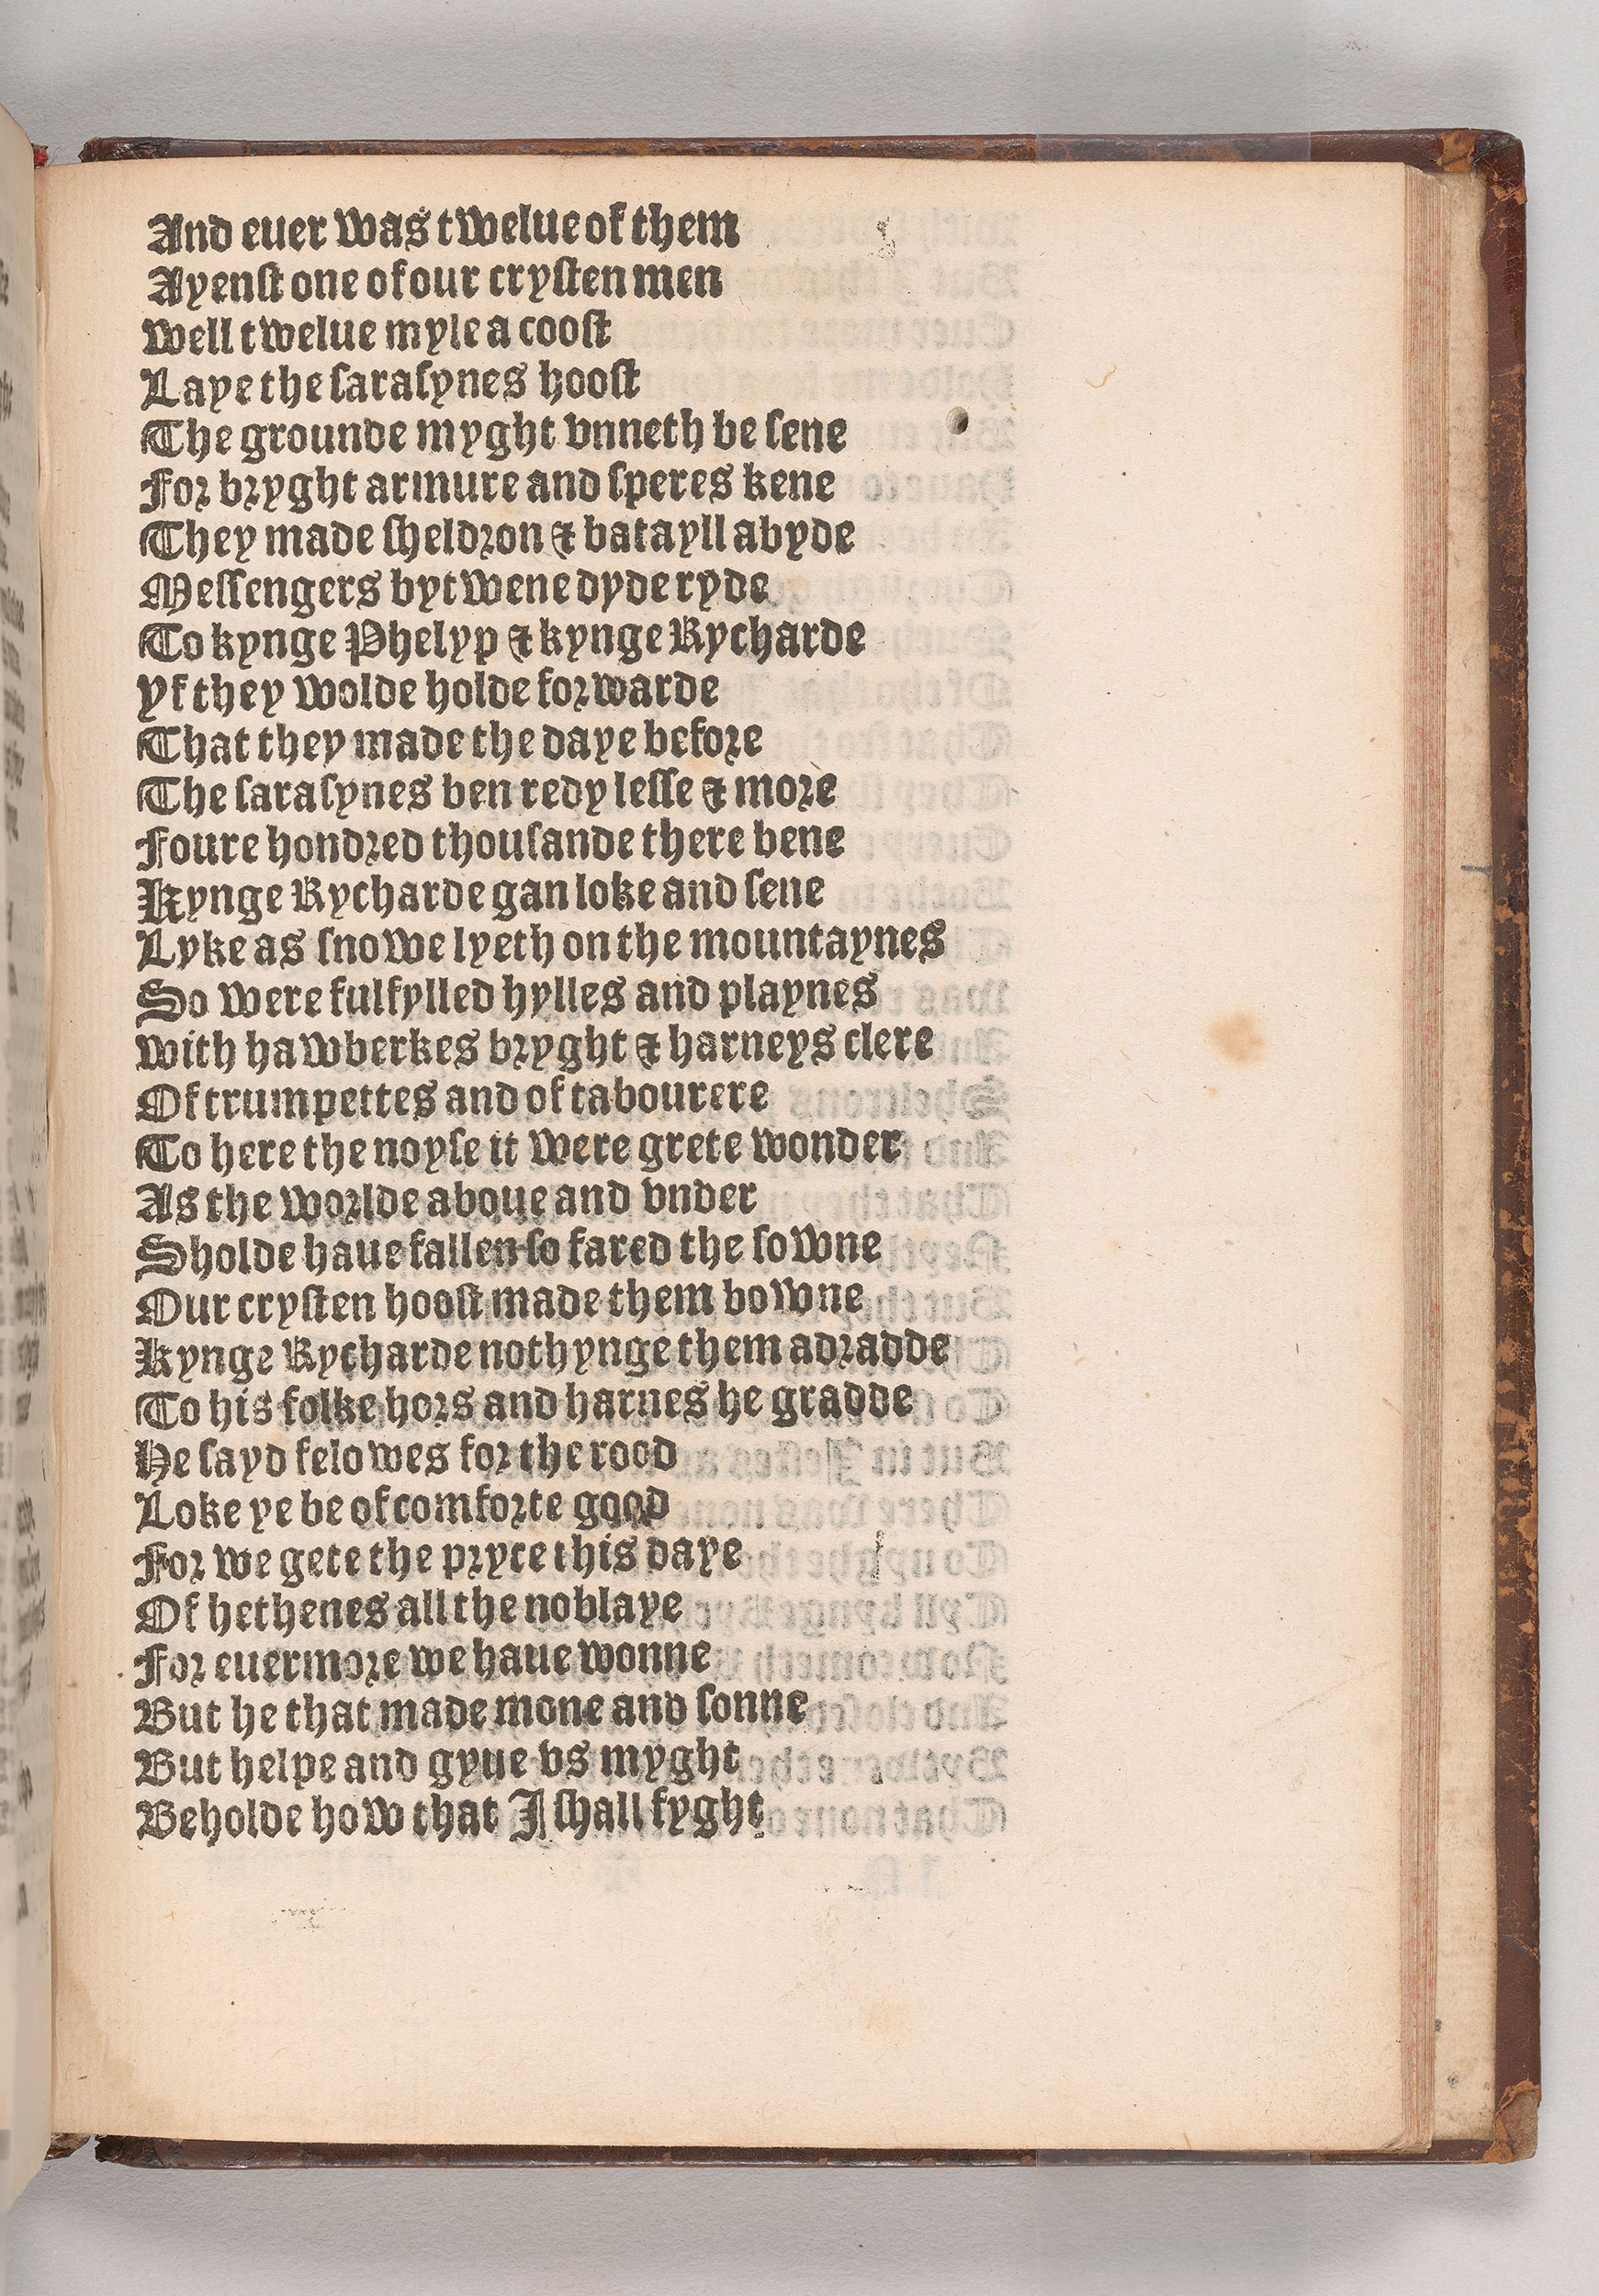 And euer was twelue of them
Ayenst one of our crysten men
Well twelue myle a coost
Laye the sarasynes hoost
The grounde myght vnneth be sene
For bryght armure and speres kene
They made sheldron & batayll abyde
Messengers bytwene dyde ryde
To kynge Phelyp & kynge Rycharde
Yf they wolde holde forwarde
That they made the daye before
The sarasynes ben redy lesse & more
Foure hondred thousande there bene
Kynge Rycharde gan loke and sene
Lyke as snowe lyeth on the mountaynes
So were fulfylled hylles and playnes
With hawberkes bryght & harneys clere
Of trumpettes and of tabourere
To here the noyse it were grete wonder
As the worlde aboue and vnder
Sholde haue fallen so fared the sowne
Our crysten hoost made them bowne
Kynge Rycharde nothynge them adradde
To his folke hors and harnes he gradde
He sayd felowes for the rood
Loke ye be of comforte good
For we gete the pryce this daye
Of hethenes all the noblaye
For euermore we haue wonne
But he that made mone and sonne
But helpe and gyue vs myght
Beholde how that I shall fyght